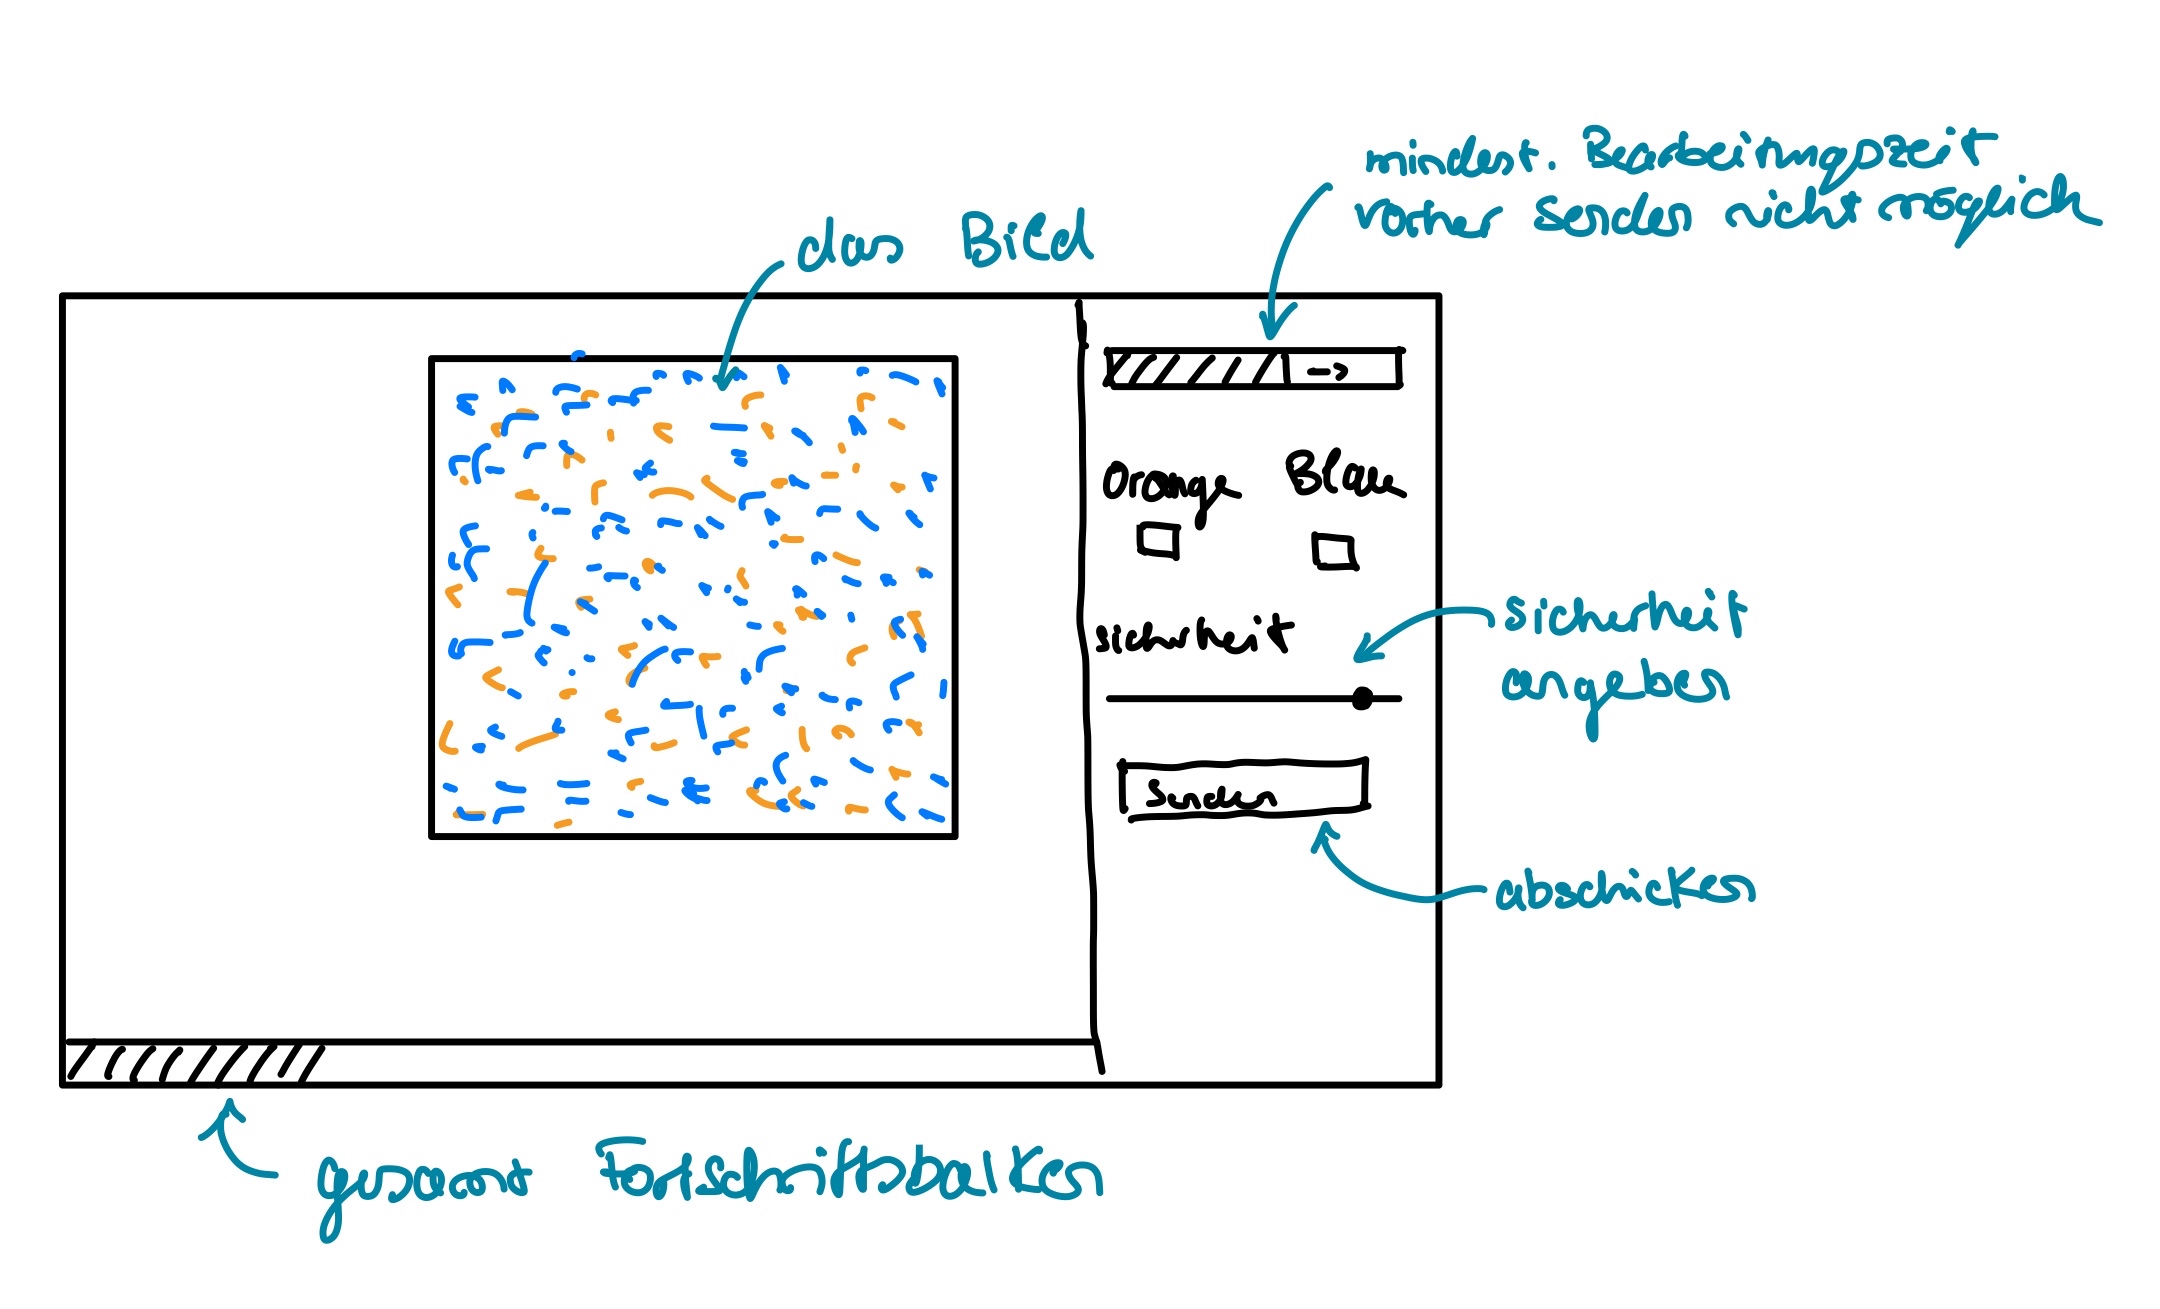 mindest. Bearbeitungszeit
vorher Senden nicht möglich
das Bild
Orange Blau
Sicherheit
Sicherheit
angeben
Senden
abschicken
gesamt Fortschrittsbalken